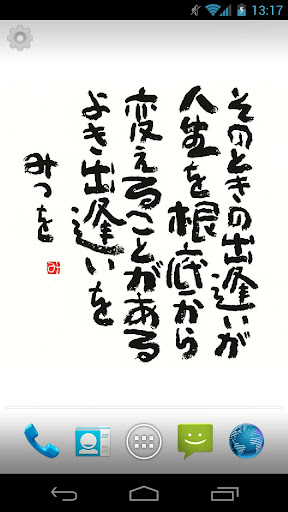 13:17
そのときの出逢いが
人生を根底から
変えることがある
よき出逢いを
みつを
み